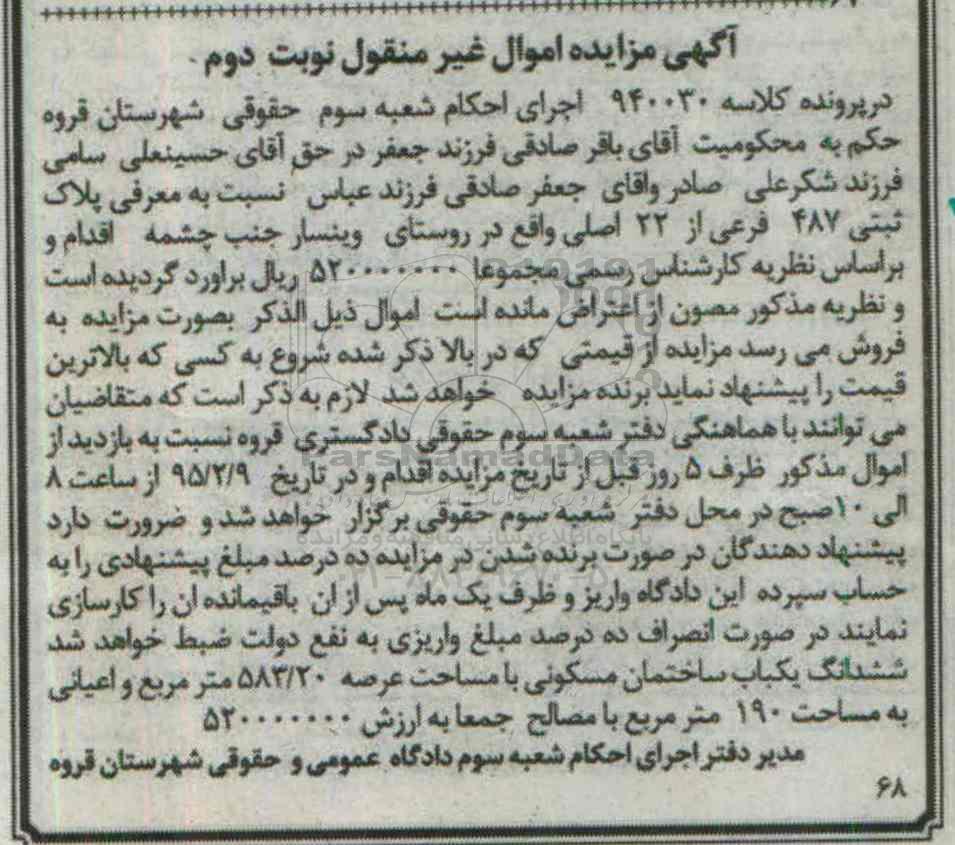 آگهی مزایده اموال غیر منقول نوبت دوم
درپرونده کلاسه ۹۴۰۰۳۰ اجرای احکام شعبه سوم حقوقی شهرستان قروه
حکم به محکومیت آقای باقر صادقی فرزند جعفر در حق آقای حسینعلی سامی
فرزند شکرعلی صادر واقای جعفر صادقی فرزند عباس نسبت به معرفی پلاک
ثبتی ۴۸۷ فرعی از ۲۲ اصلی واقع در روستای وینسار جنب چشمه اقدام و
براساس نظریه کارشناس رسمی مجموعا ۵۲۰۰۰۰۰۰۰ ریال براورد گردیده است
و نظریه مذکور مصون از اعتراض مانده است اموال ذیل الذکر بصورت مزایده به
فروش می رسد مزایده از قیمتی که در بالا ذکر شده شروع به کسی که بالاترین
قیمت را پیشنهاد نماید برنده مزایده خواهد شد لازم به ذکر است که متقاضیان
می توانند با هماهنگی دفتر شعبه سوم حقوقی دادگستری قروه نسبت به بازدید از
اموال مذکور ظرف ۵ روز قبل از تاریخ مزایده اقدام و در تاریخ ۹۵/۲/۹ از ساعت ۸
الی ۱۰صبح در محل دفتر شعبه سوم حقوقی برگزار خواهد شد و ضرورت دارد
پیشنهاد دهندگان در صورت برنده شدن در مزایده ده درصد مبلغ پیشنهادی را به
حساب سپرده این دادگاه واریز و ظرف یک ماه پس از ان باقیمانده ان را کارسازی
نمایند در صورت انصراف ده درصد مبلغ واریزی به نفع دولت ضبط خواهد شد
ششدانگ یکباب ساختمان مسکونی با مساحت عرصه ۵۸۳/۲۰ متر مربع و اعیانی
به مساحت ۱۹۰ متر مربع با مصالح جمعا به ارزش ۵۲۰۰۰۰۰۰۰
مدیر دفتر اجرای احکام شعبه سوم دادگاه عمومی و حقوقی شهرستان قروه
۶۸
ParsNamadData